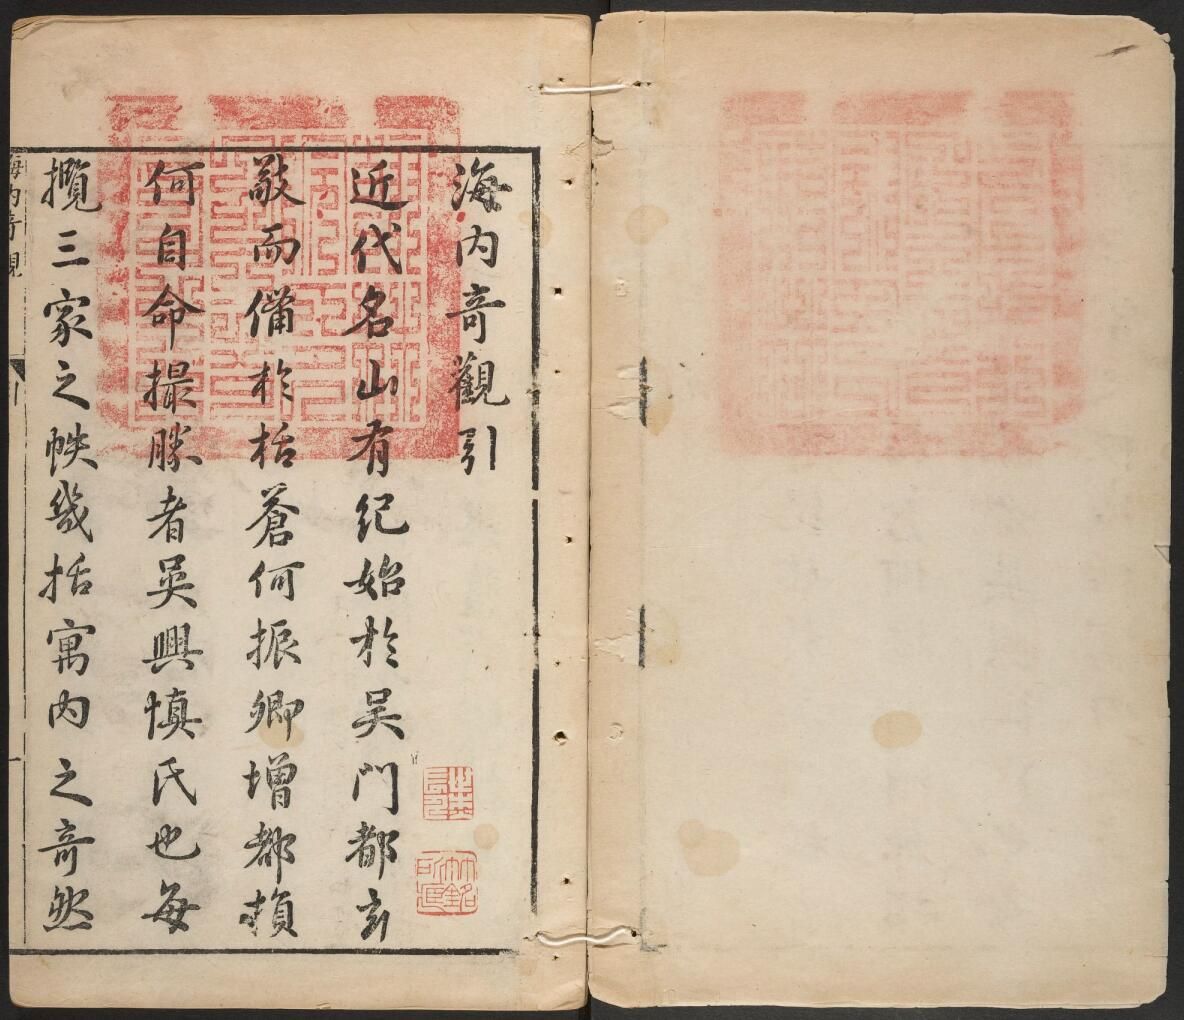 海内奇觀引
近代名山有紀始於吴門都玄
敬而僃於栝蒼何振卿增都損
何自命撮勝者吴興慎氏也每
攬三家之帙幾括寓内之奇然
海内奇觀
引
一